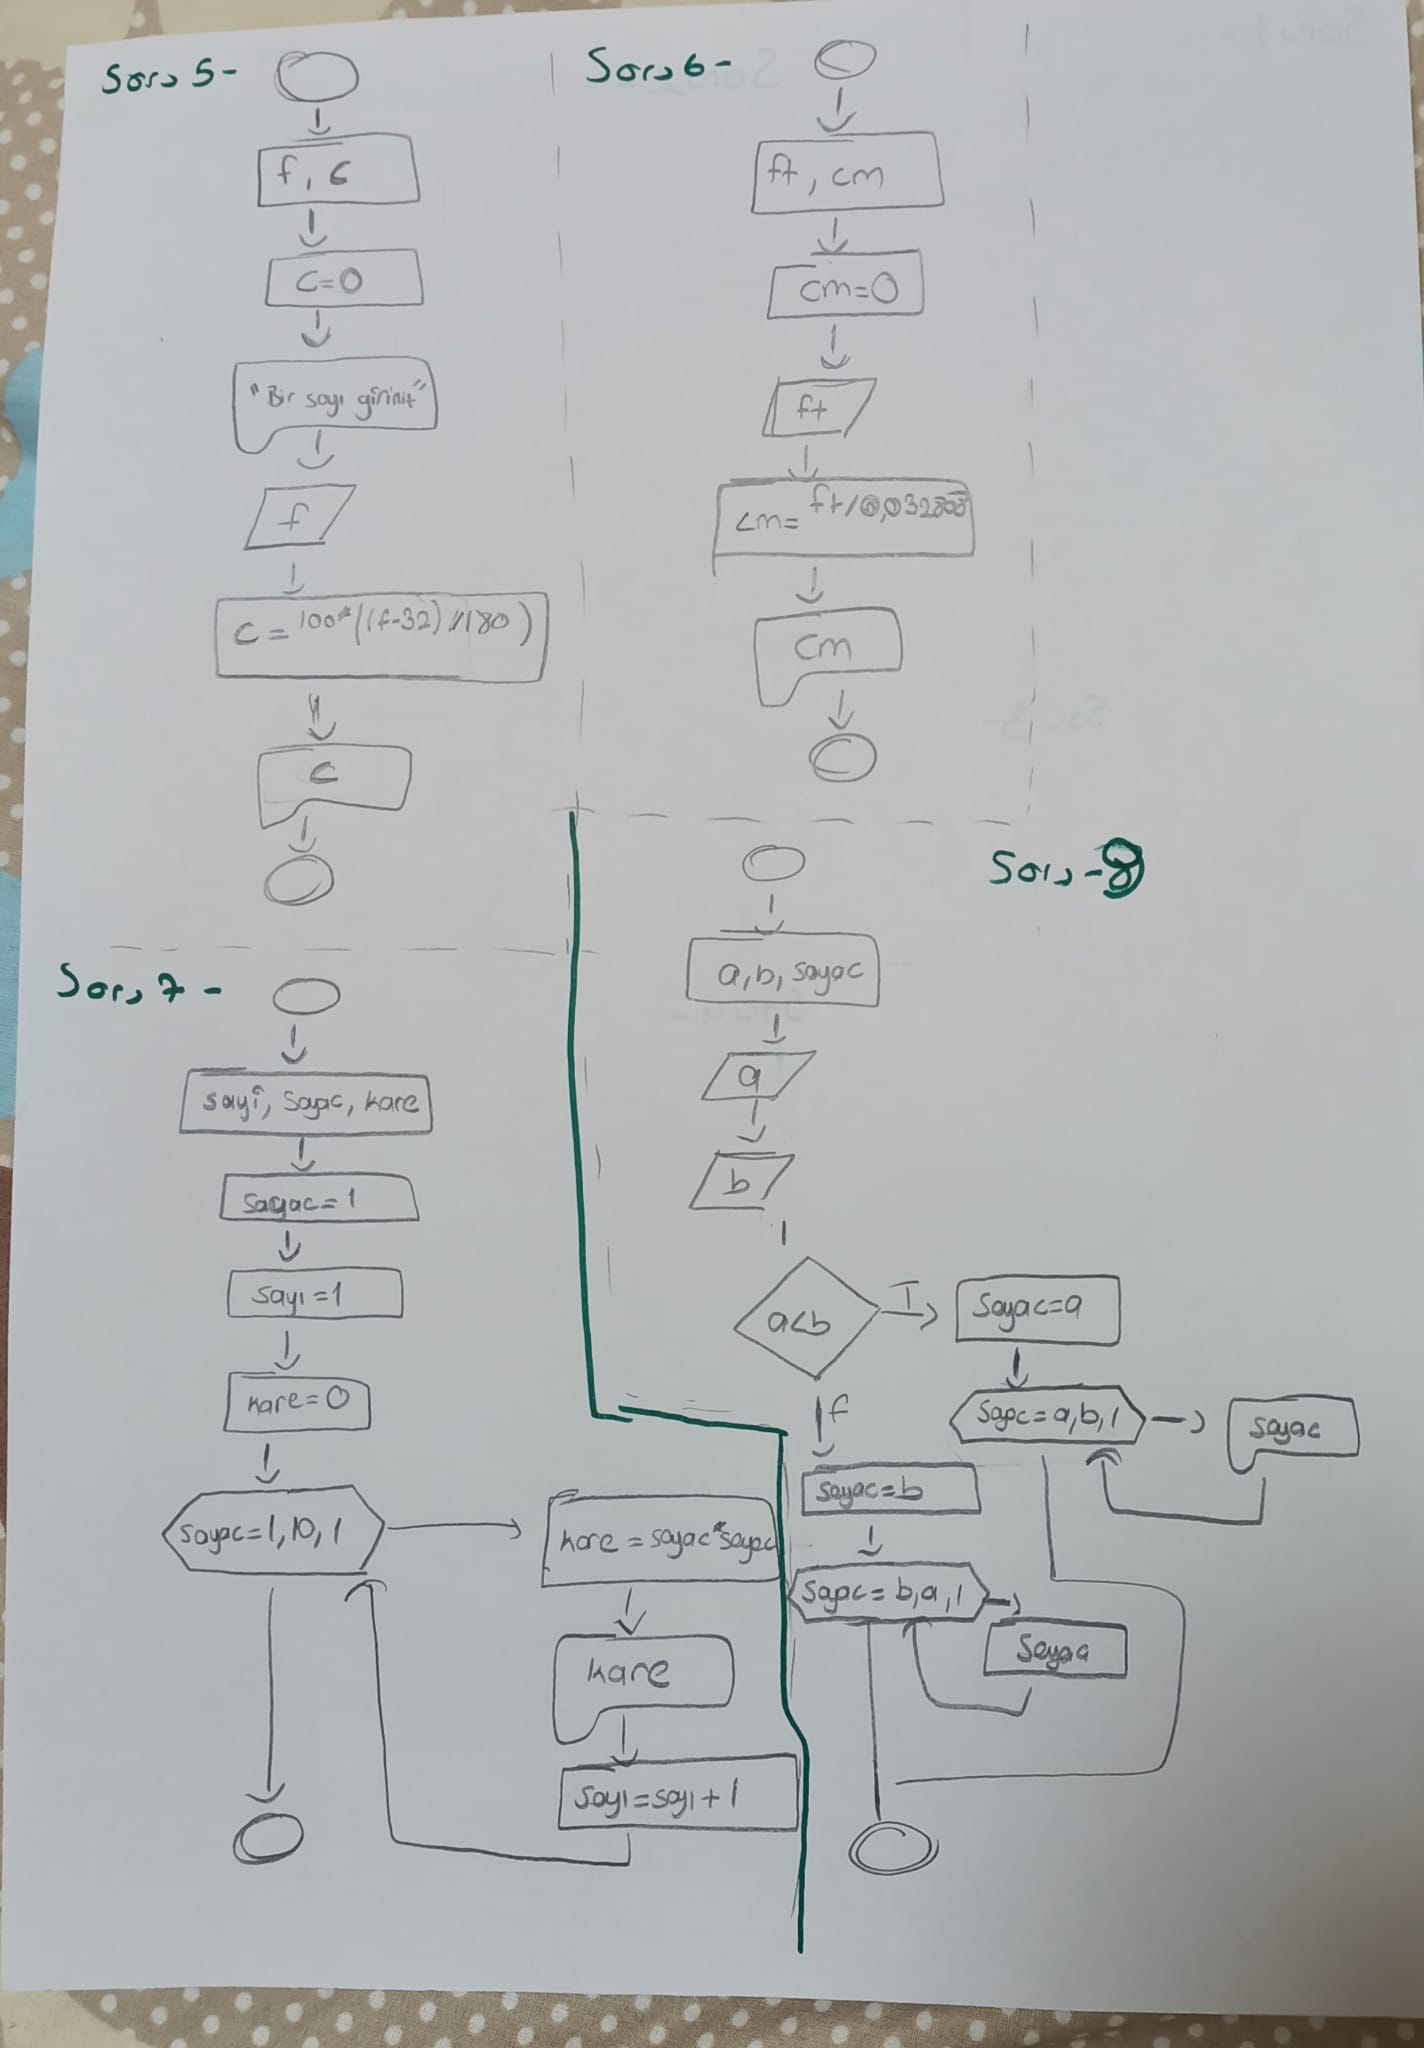 Soru 5-
f, c
c=0
"Bir sayı giriniz"
f
c = 100*((f-32)/180)
c
Soru 6-
ft, cm
cm=0
ft
cm= ft/0,032808
cm
Soru 7-
sayi, sayac, kare
sayac=1
sayı=1
kare=0
sayac=1,10,1
kare = sayac*sayac
kare
sayı=sayı+1
Soru -8
a, b, sayac
a
b
a<b
T
sayac=a
sayac=a,b,1
sayac
f
sayac=b
sayac=b,a,1
sayac